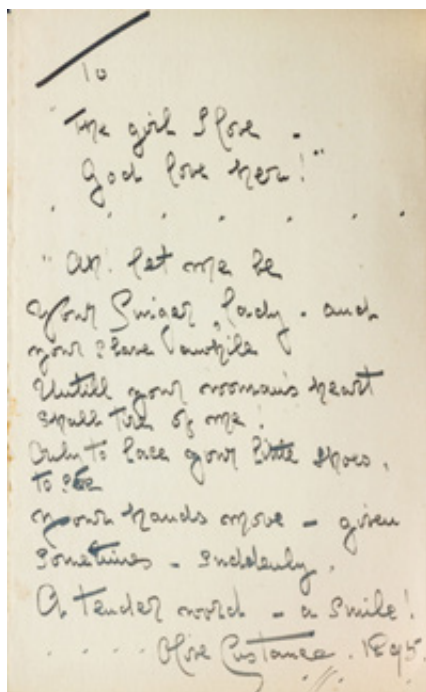 To
"The girl I love -
God love her!"
. . . . . . .
"Ah! let me be
Your Singer, lady - and
your slave awhile
Untill your woman's heart
shall tire of me!
Only to lace your little shoes,
to see
Your hands move - given
sometimes - suddenly,
A tender word - a smile!
. . . . Olive Custance. 1895.